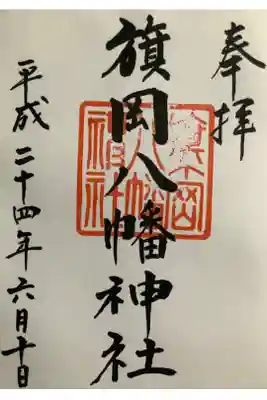 奉拝
旗岡八幡神社
平成二十四年六月十日